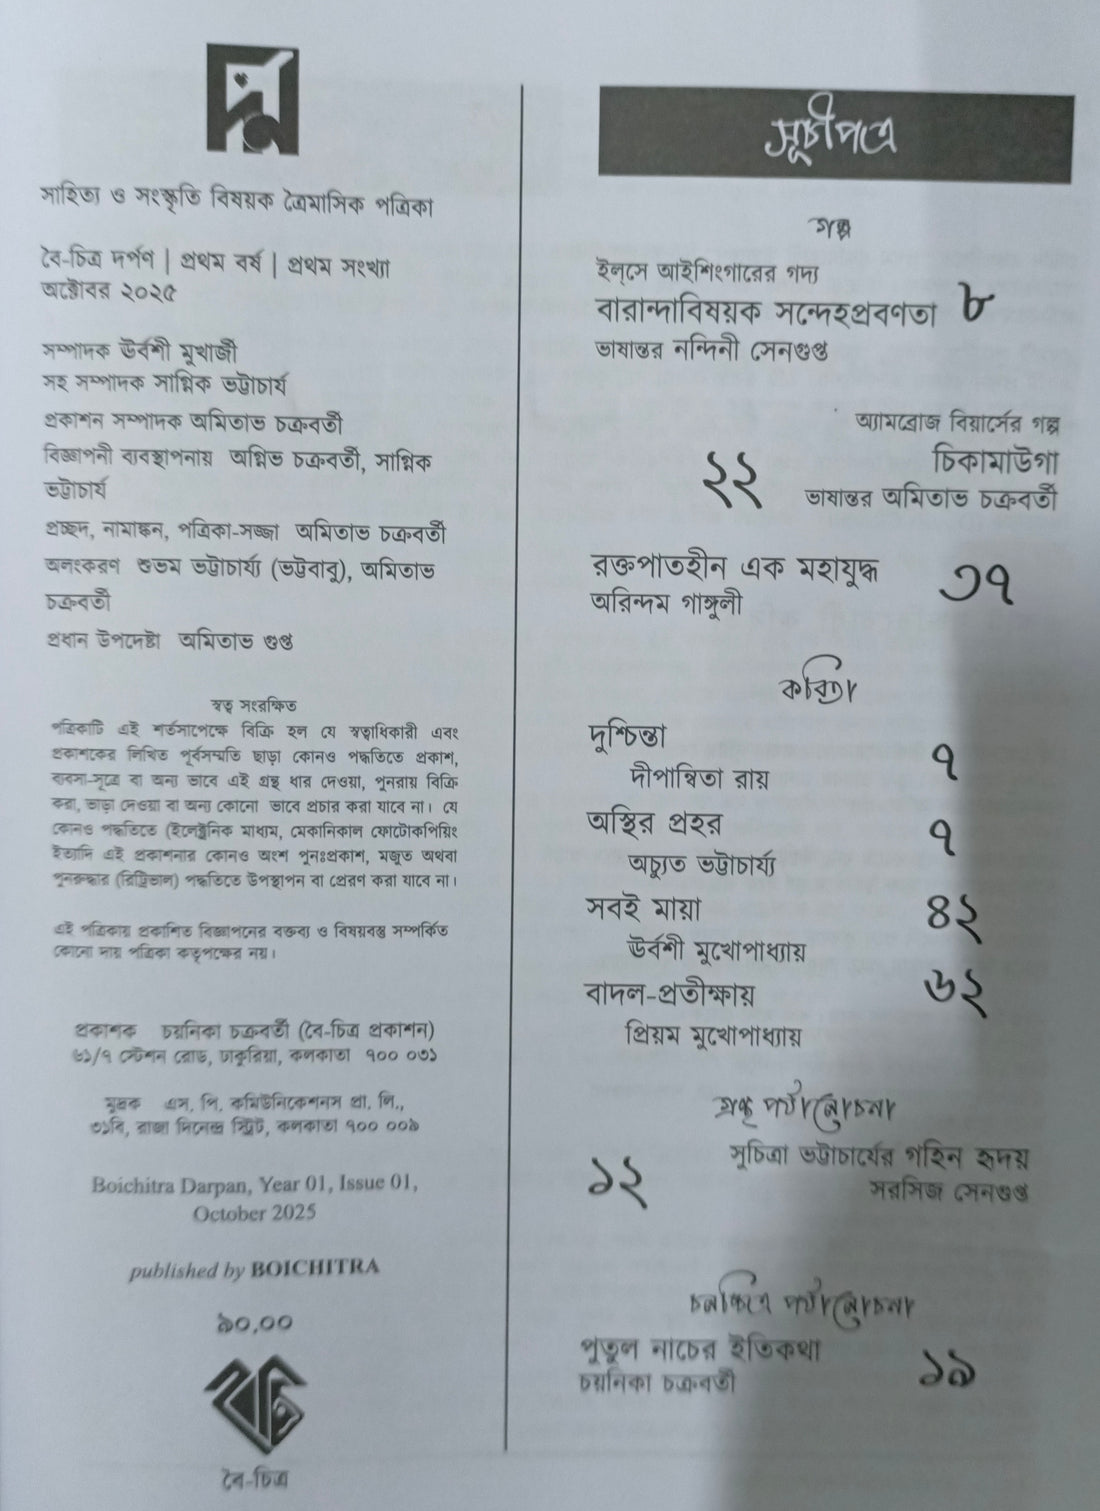 সাহিত্য ও সংস্কৃতি বিষয়ক ত্রৈমাসিক পত্রিকা
বৈ-চিত্র দর্পণ | প্রথম বর্ষ | প্রথম সংখ্যা
অক্টোবর ২০২৫
সম্পাদক ঊর্বশী মুখার্জী
সহ সম্পাদক সাগ্নিক ভট্টাচার্য
প্রকাশন সম্পাদক অমিতাভ চক্রবর্তী
বিজ্ঞাপনী ব্যবস্থাপনায় অগ্নিভ চক্রবর্তী, সাগ্নিক
ভট্টাচার্য
প্রচ্ছদ, নামাঙ্কন, পত্রিকা-সজ্জা অমিতাভ চক্রবর্তী
অলংকরণ শুভম ভট্টাচার্য্য (ভট্টবাবু), অমিতাভ
চক্রবর্তী
প্রধান উপদেষ্টা অমিতাভ গুপ্ত
স্বত্ব সংরক্ষিত
পত্রিকাটি এই শর্তসাপেক্ষে বিক্রি হল যে স্বত্বাধিকারী এবং
প্রকাশকের লিখিত পূর্বসম্মতি ছাড়া কোনও পদ্ধতিতে প্রকাশ,
ব্যবসা-সূত্রে বা অন্য ভাবে এই গ্রন্থ ধার দেওয়া, পুনরায় বিক্রি
করা, ভাড়া দেওয়া বা অন্য কোনো ভাবে প্রচার করা যাবে না। যে
কোনও পদ্ধতিতে (ইলেক্ট্রনিক মাধ্যম, মেকানিকাল ফোটোকপিয়িং
ইত্যাদি এই প্রকাশনার কোনও অংশ পুনঃপ্রকাশ, মজুত অথবা
পুনরুদ্ধার (রিট্রিভাল) পদ্ধতিতে উপস্থাপন বা প্রেরণ করা যাবে না।
এই পত্রিকায় প্রকাশিত বিজ্ঞাপনের বক্তব্য ও বিষয়বস্তু সম্পর্কিত
কোনো দায় পত্রিকা কতৃপক্ষের নয়।
প্রকাশক চয়নিকা চক্রবর্তী (বৈ-চিত্র প্রকাশন)
৬১/৭ স্টেশন রোড, ঢাকুরিয়া, কলকাতা ৭০০ ০৩১
মুদ্রক এস. পি. কমিউনিকেশনস প্রা. লি.,
৩১বি, রাজা দিনেন্দ্র স্ট্রিট, কলকাতা ৭০০ ০০৯
Boichitra Darpan, Year 01, Issue 01,
October 2025
published by BOICHITRA
৯০.০০
বৈ-চিত্র
সূচীপত্র
গল্প
ইল্‌সে আইশিংগারের গদ্য
বারান্দাবিষয়ক সন্দেহপ্রবণতা ৮
ভাষান্তর নন্দিনী সেনগুপ্ত
অ্যামব্রোজ বিয়ার্সের গল্প
চিকামাউগা
২২ ভাষান্তর অমিতাভ চক্রবর্তী
রক্তপাতহীন এক মহাযুদ্ধ ৩৭
অরিন্দম গাঙ্গুলী
কবিতা
দুশ্চিন্তা
দীপান্বিতা রায় ৭
অস্থির প্রহর ৭
অচ্যুত ভট্টাচার্য্য
সবই মায়া ৪২
ঊর্বশী মুখোপাধ্যায়
বাদল-প্রতীক্ষায় ৬২
প্রিয়ম মুখোপাধ্যায়
গ্রন্থ পর্যালোচনা
সুচিত্রা ভট্টাচার্যের গহিন হৃদয়
১২ সরসিজ সেনগুপ্ত
চলচ্চিত্র পর্যালোচনা
পুতুল নাচের ইতিকথা ১৯
চয়নিকা চক্রবর্তী